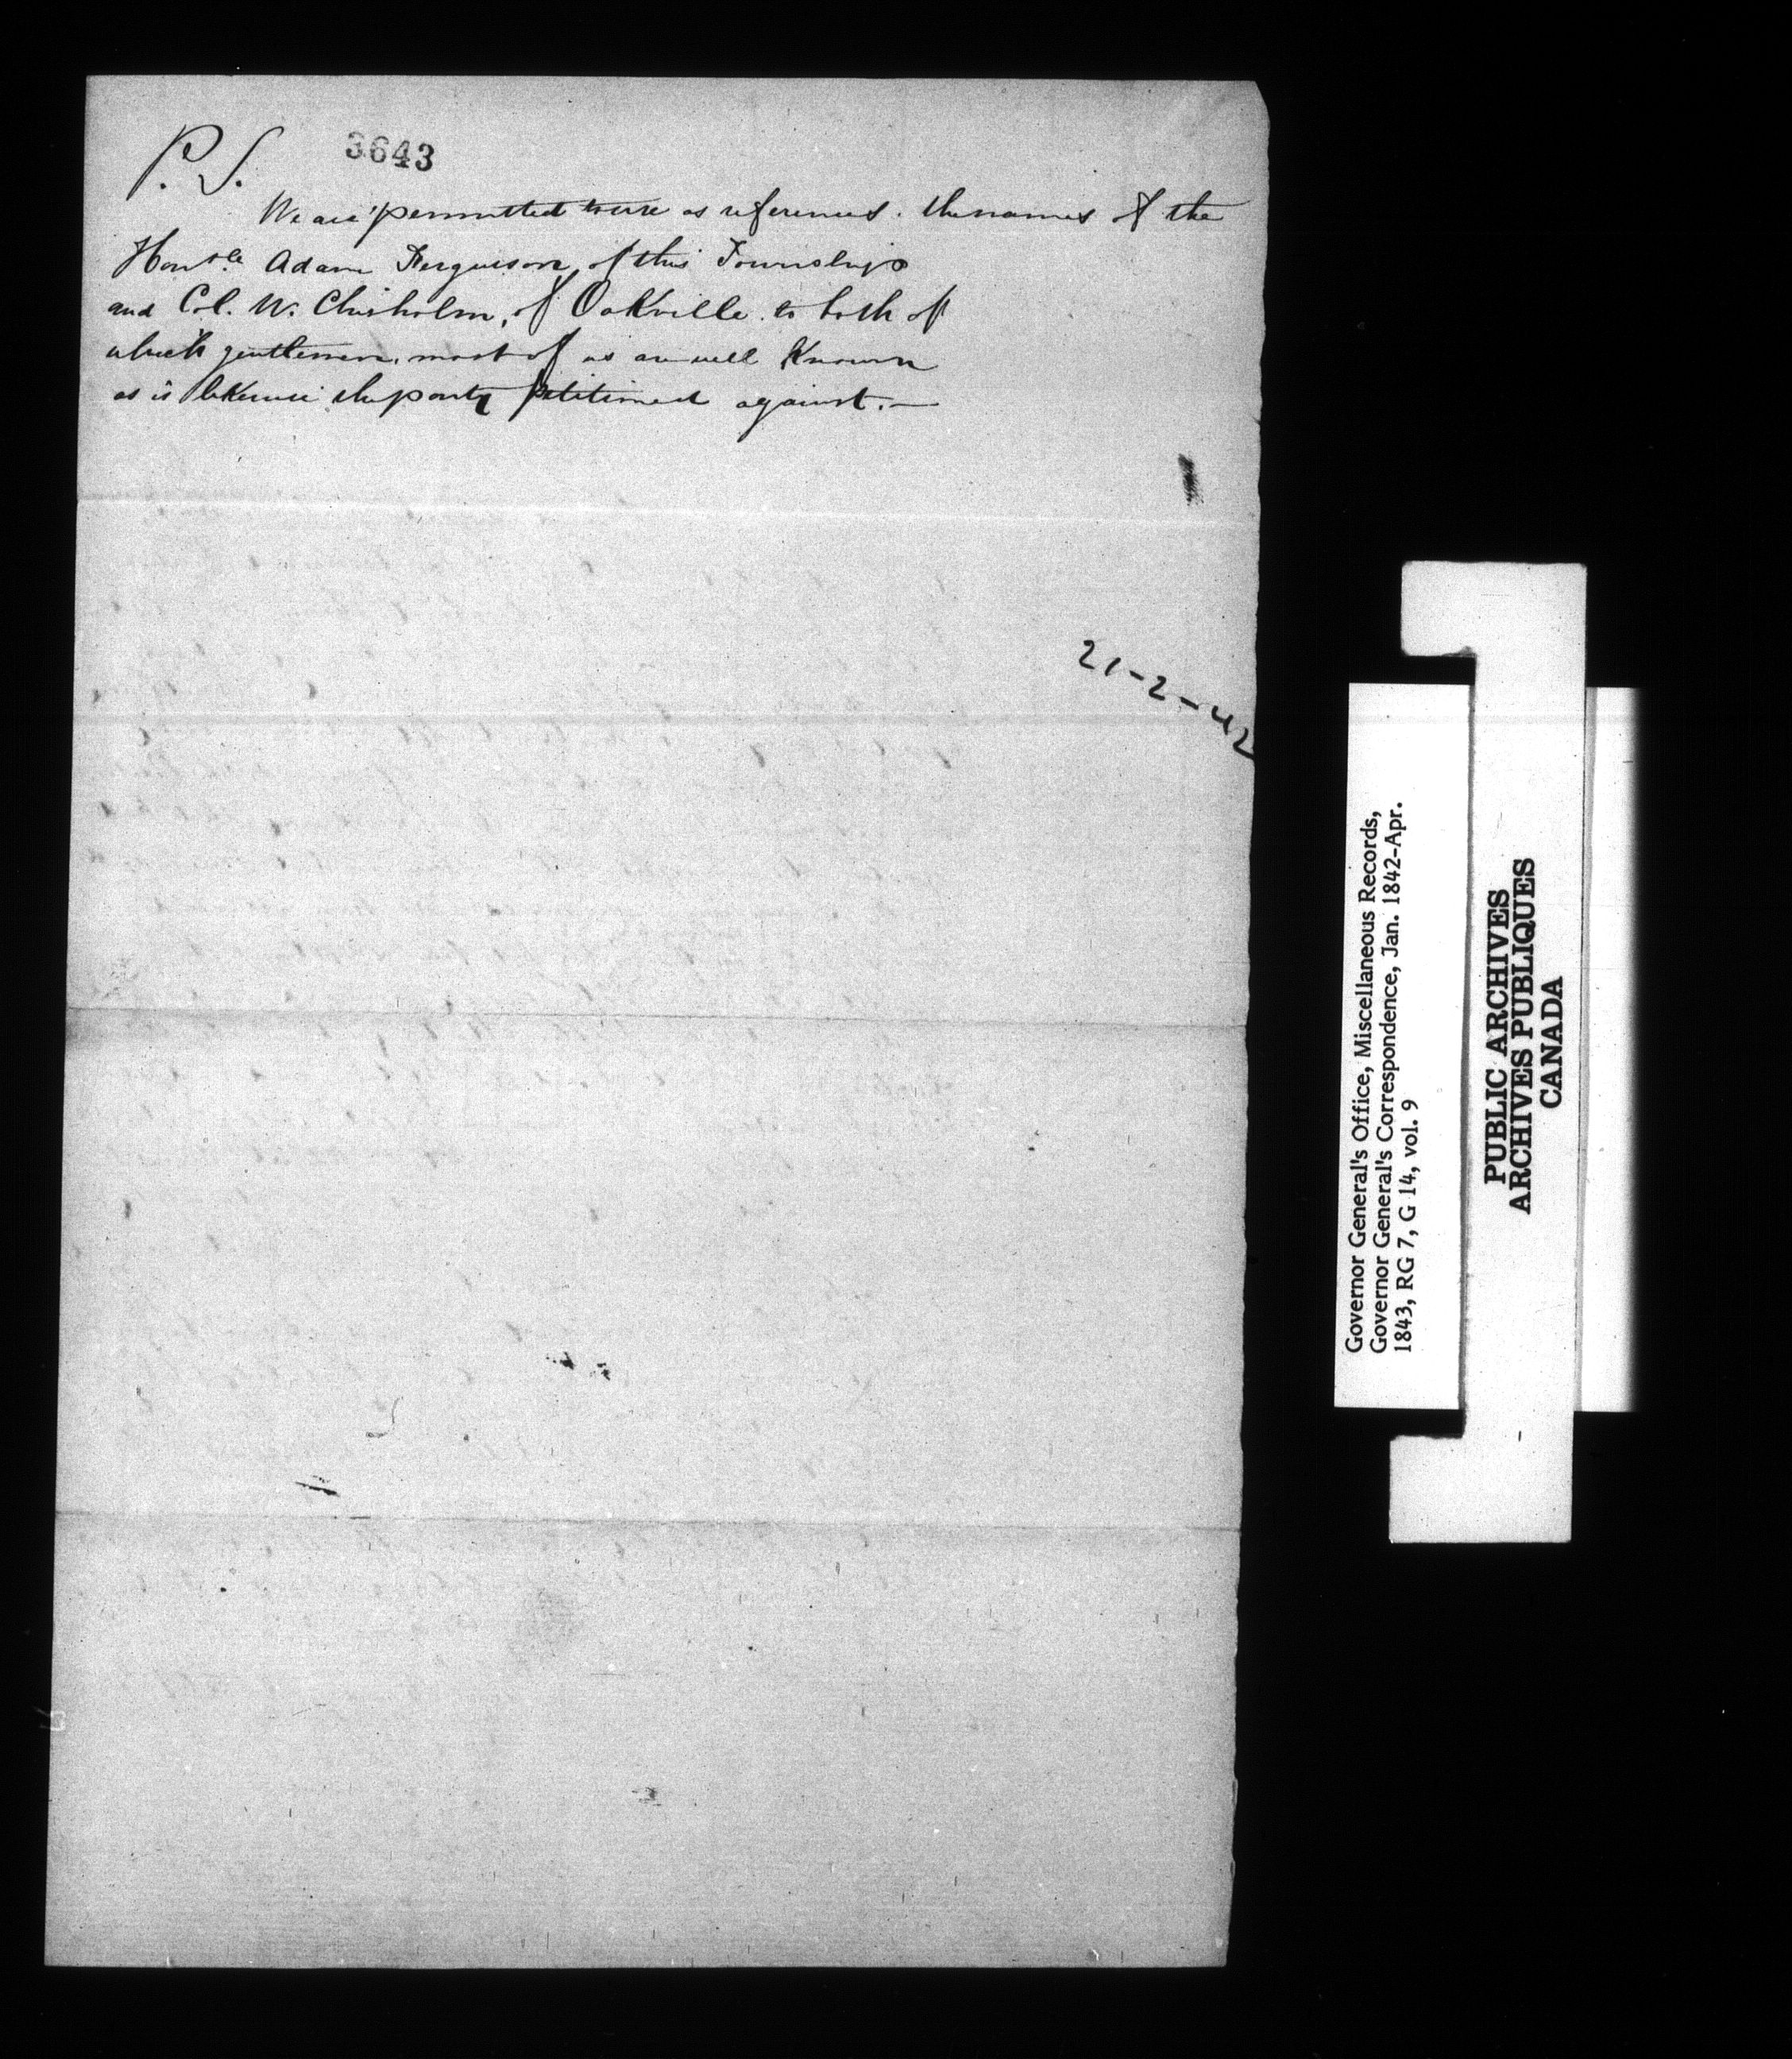 P.S. 3643
We are permitted to use as references. the names of the
Honble. Adam Ferguson, of this Township
and Col. W. Chisholm, of Oakville. to both of
which gentlemen, most of us are well Known
as is likewise the party petitioned against.—
21-2-42
Governor General's Office, Miscellaneous Records,
Governor General's Correspondence, Jan. 1842-Apr.
1843, RG 7, G 14, vol. 9
PUBLIC ARCHIVES
ARCHIVES PUBLIQUES
CANADA